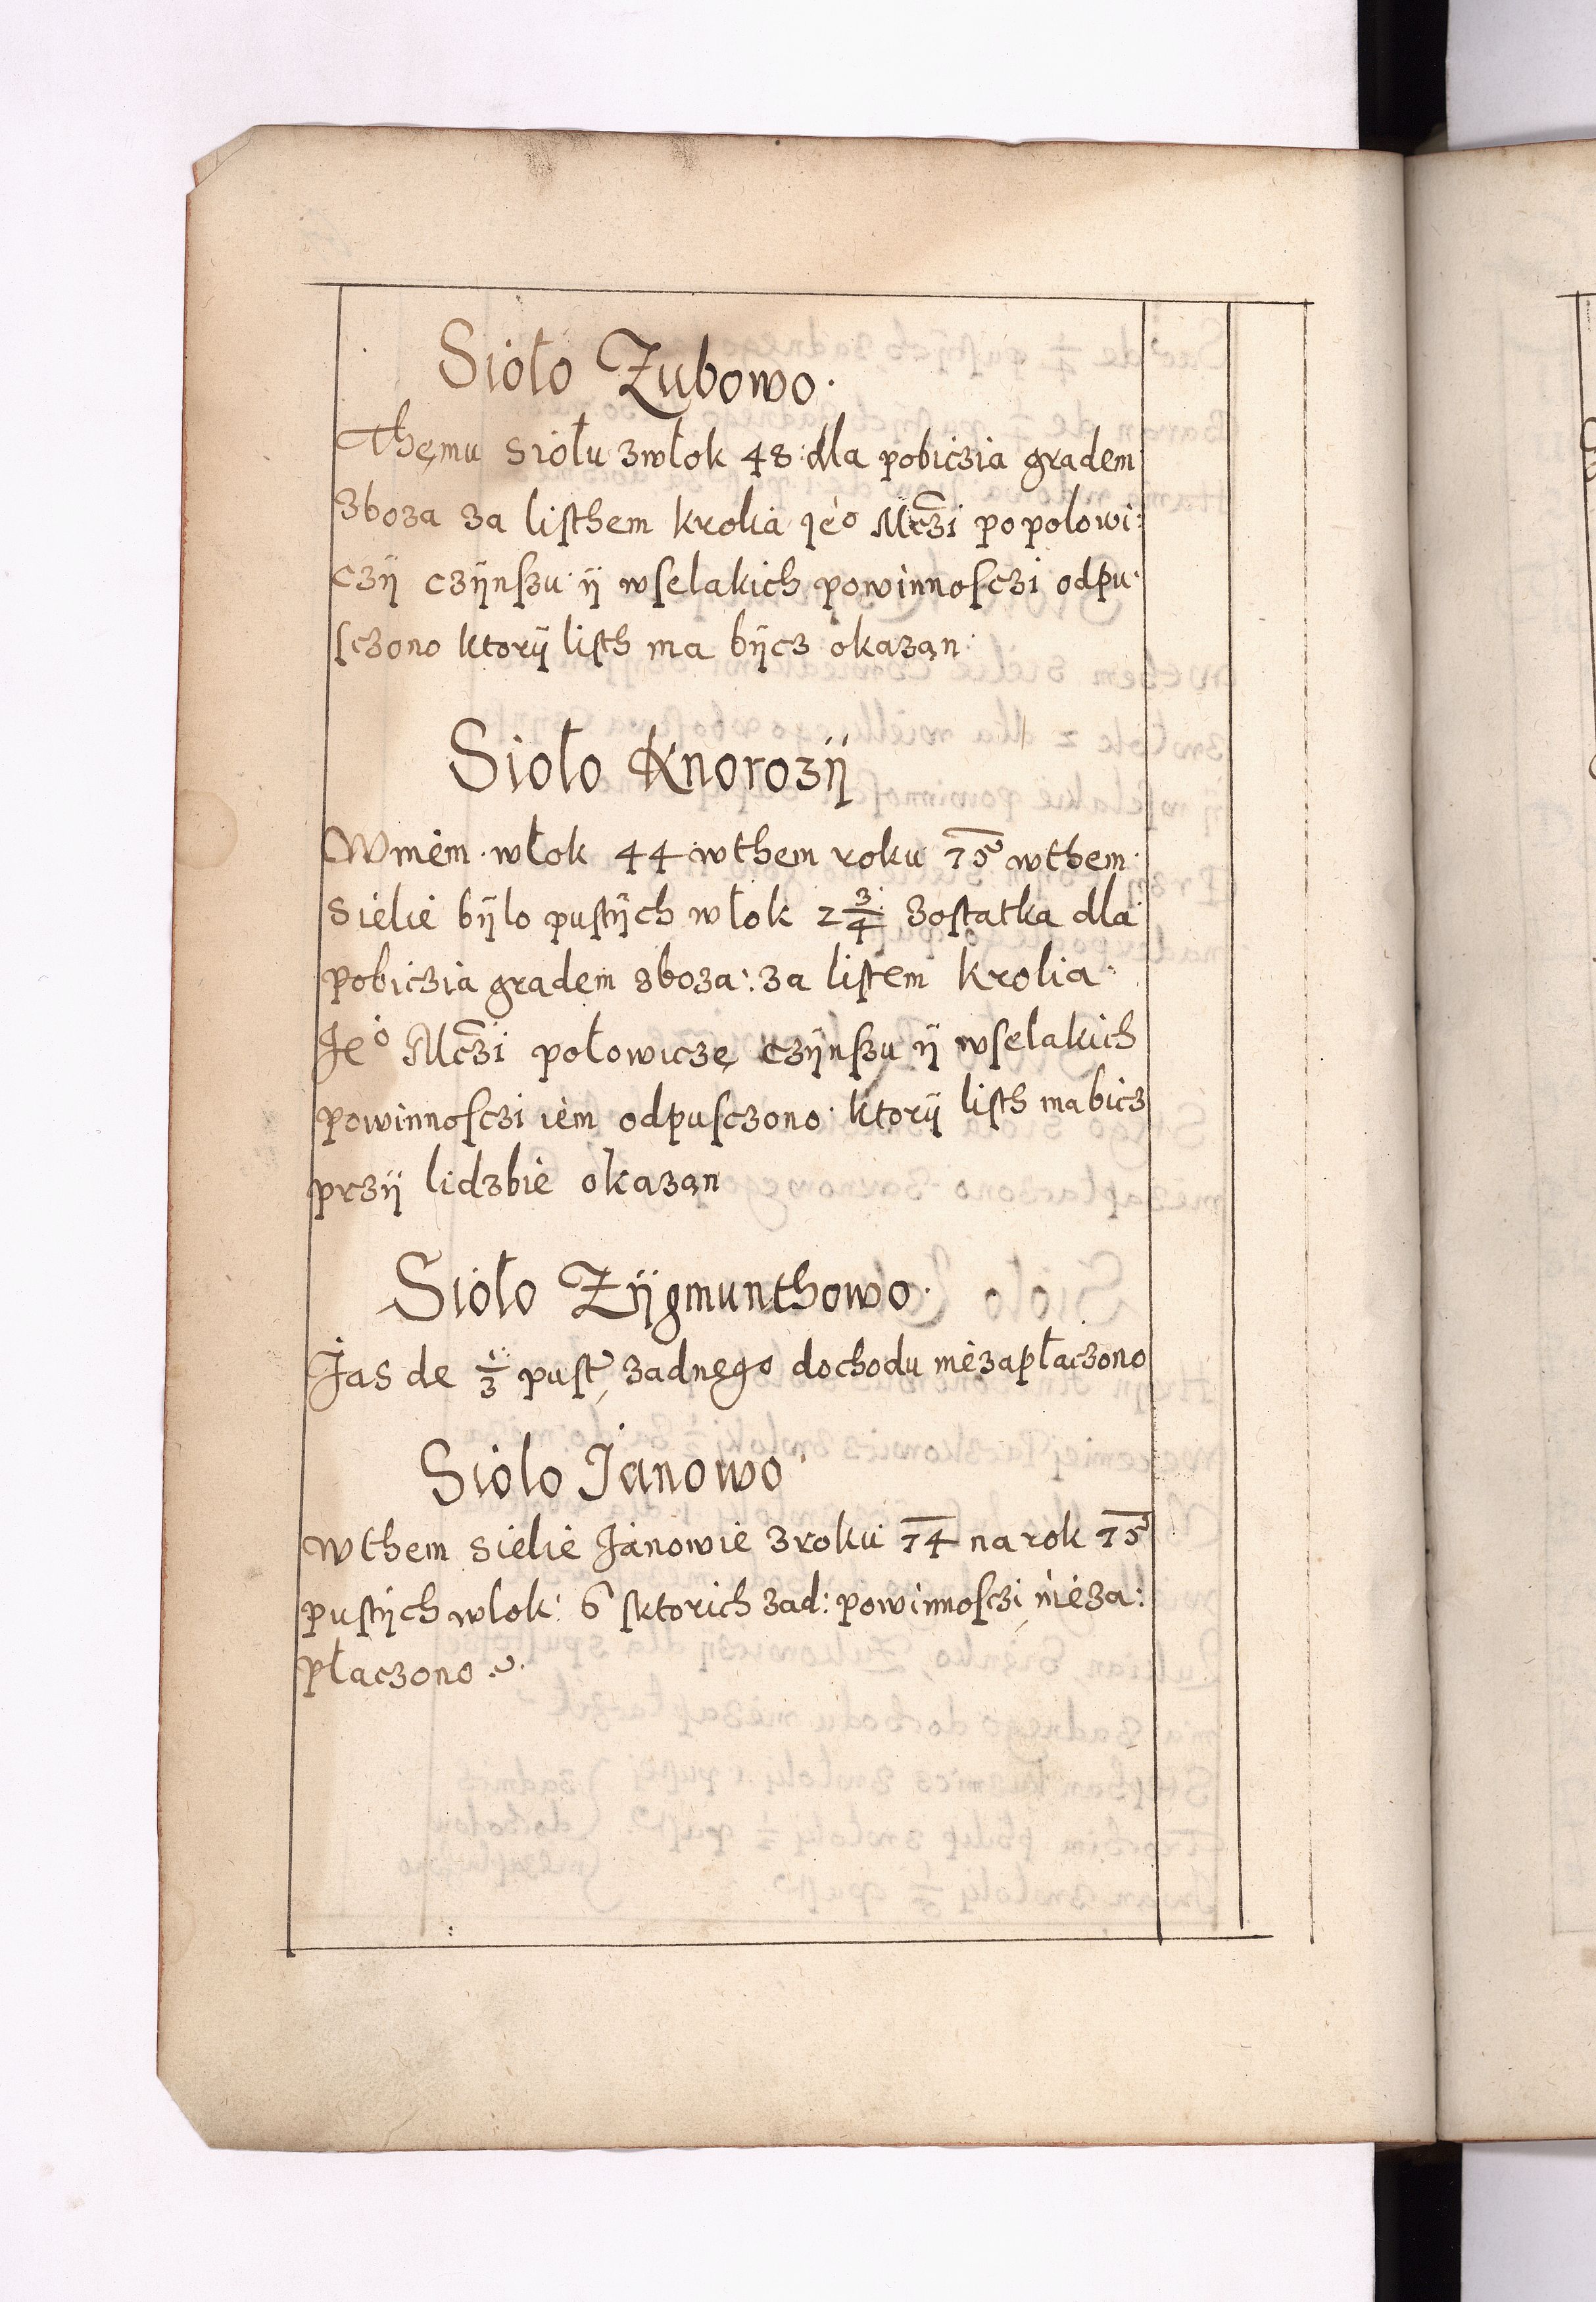 Sioło Zubowo.
Thęmu siołu zwłok 48: dla pobiczia gradem
zboza za listhem krolia ieo Mczi popolowi:
czÿ czÿnszu ÿ wselakich powinnosczi odpu:
sczono ktorÿ listh ma bÿcz okazan:
Sioło Knorozÿ
W niem włok 44 w them roku 75 w them
sielie bÿlo pustÿch włok 2 3/4 zostatka dla
pobiczia gradem zboza: za listem krolia
Jeo Mczi połowiczę czÿnszu ÿ wselakich
powinnosczi iem odpusczono ktorÿ listh ma bicz
przÿ lidzbie okazan
Sioło Zÿgmunthowo.
Jas de 1/3 pust zadnego dochodu niezapłaczono
Sioło Janowo
W them sielie Janowie z roku 74 na rok 75
pustÿch wlok: 6 sktorich zad: powinnosczi nieza:
płaczono